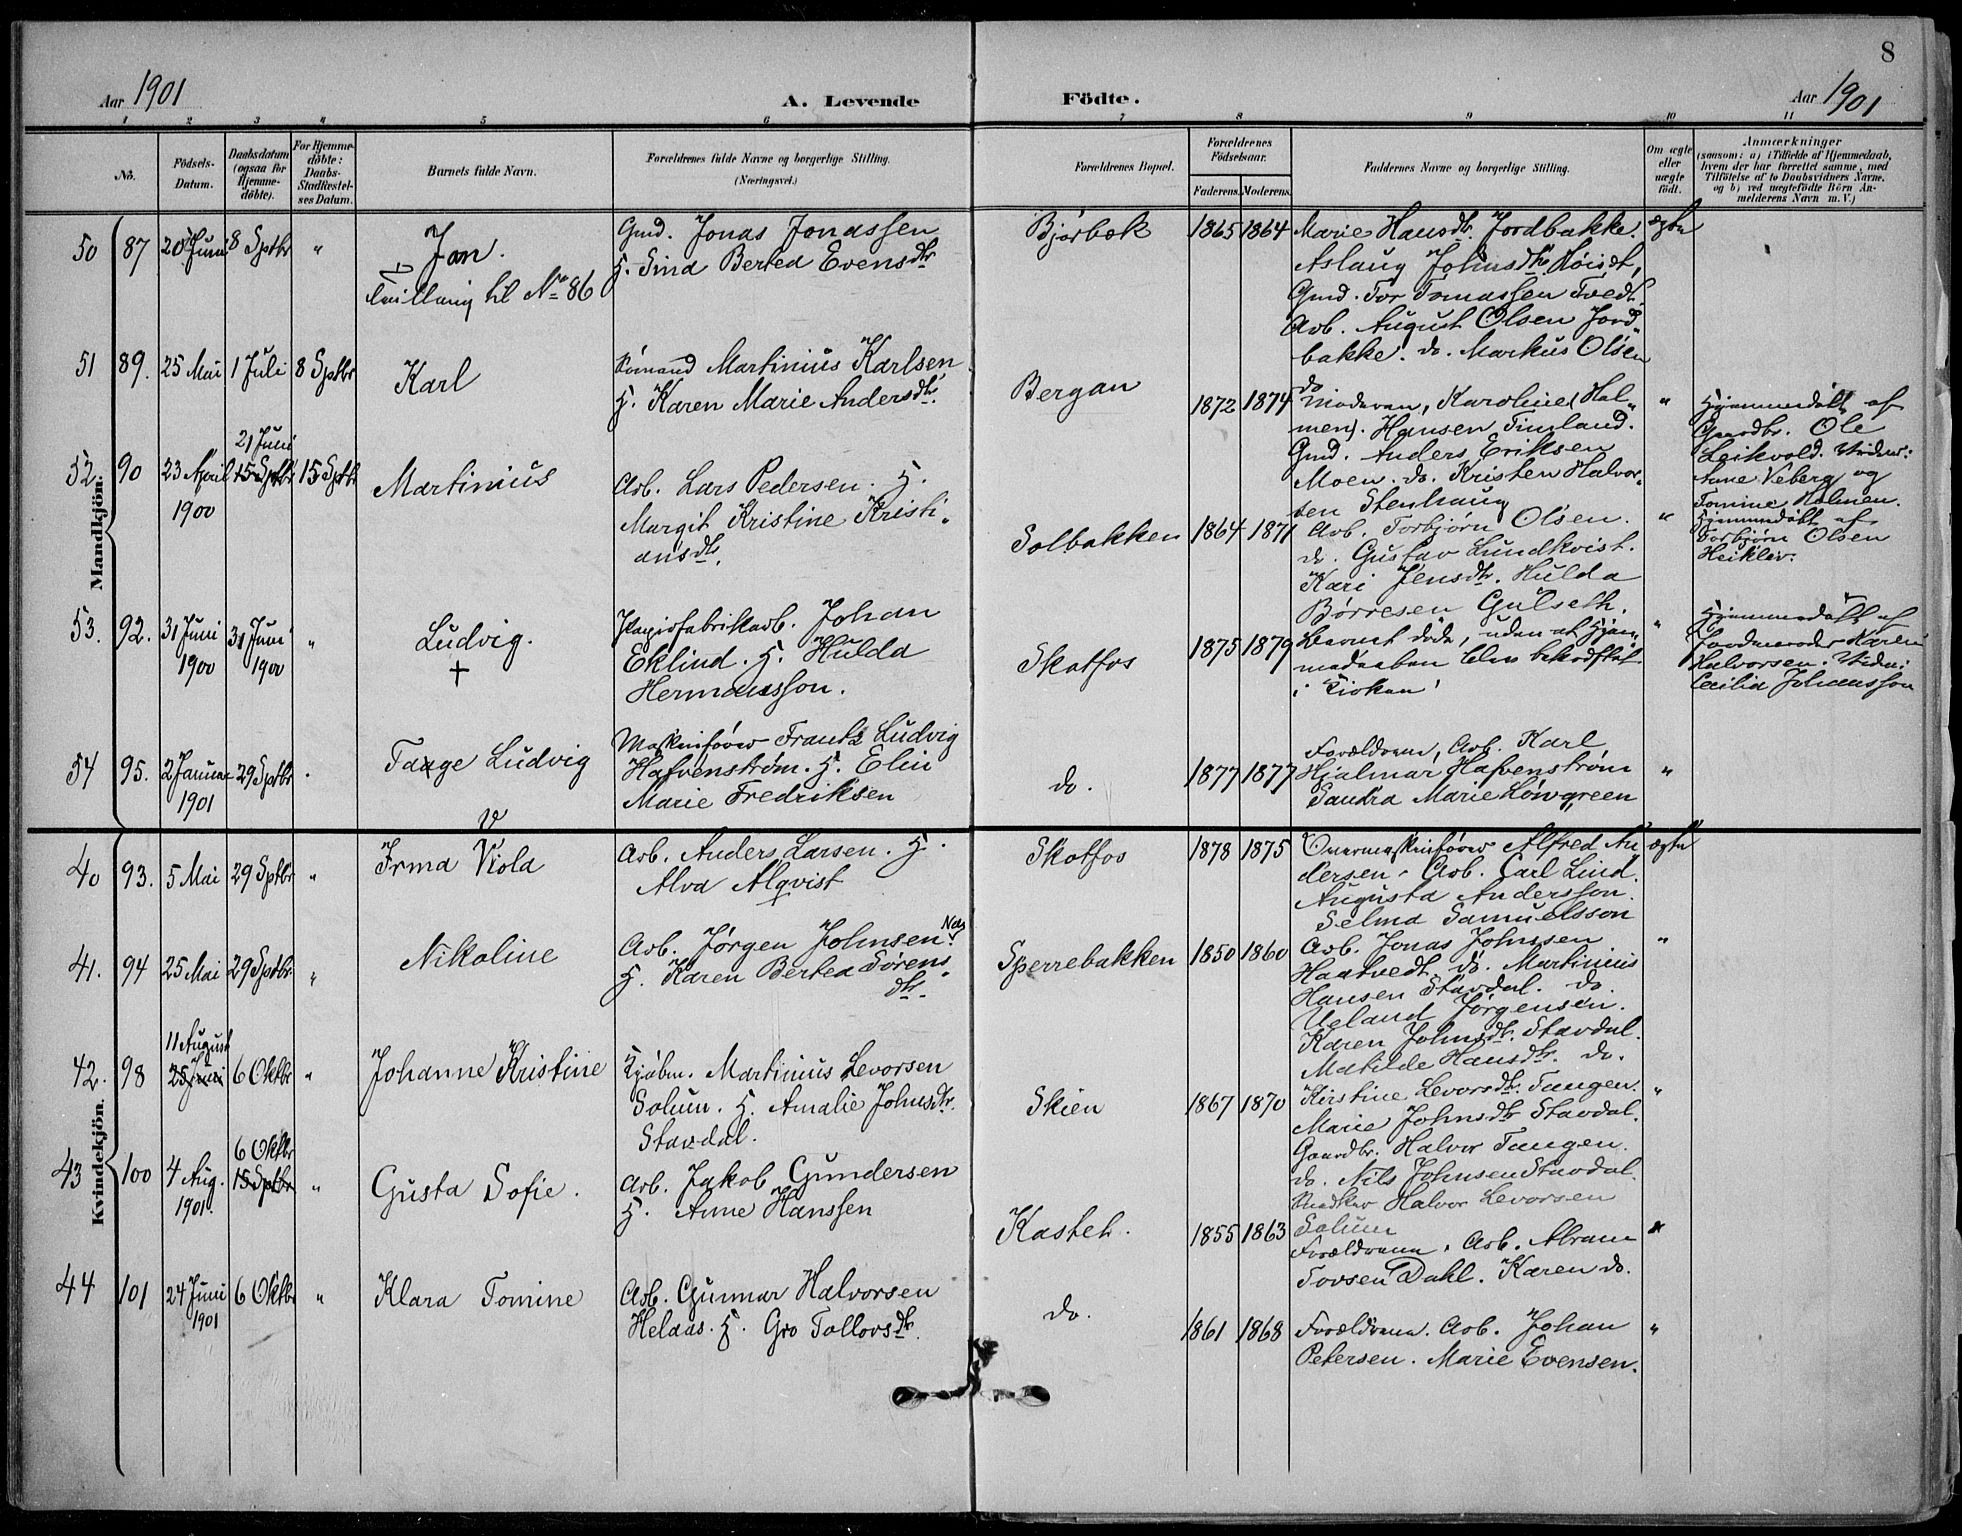 8
Aar 1901
A. Levende
Födte.
Aar 1901
1 2 3 4 5 6 7 8 9 10 11
No.
Födsels-Datum.
Daabsdatum (ogsaa for Hjemme-döbte).
For Hjemme-döbte: Daabs-Stadfæstel-ses Datum.
Barnets fulde Navn.
Forældrenes fulde Navne og borgerlige Stilling.
(Næringsvei.)
Forældrenes Bopæl.
Forældrenes Födselsaar.
Faderens. Moderens.
Faddernes Navne og borgerlige Stilling.
Om ægte eller uægte födt.
Anmærkninger
(saasom: a) i Tilfælde af Hjemmedaab,
hvem der har forrettet samme, med
Tilföielse af to Daabsvidners Navne.
og b) ved uægtefödte Börn An-
melderens Navn m. V.)
Mandkjön.
50 87 20 Juni 8 Sptbr "
Jon.
Tvilling til No 86
Gmd. Jonas Jonassen
H. Sina Bertea Evensdtr.
Bjørbæk 1865 1864
Marie Hansdtr. Jordbakke.
Aslaug Johnsdtr. Høiset,
Gmd. Tor Tomassen Tvedt.
Arb. August Olsen Jord-
bakke. do. Markus Olsen
do
ægte
51 89. 25 Mai 1 Juli 8 Sptbr
Karl
Rømand Martinius Karlsen
H. Karen Marie Andersdtr.
Bergan 1872 1874
Moderen, Karoline Hol-
men). Hansen Timland.
Gmd. Anders Eriksen
Moen. do. Kristen Halvor-
sen Stenhaug
"
Hjemmedøbt af
Gaardbr. Ole
Leikvold. Vidner:
Anne Veberg og
Tomine Holmen.
52. 90 23 April 1900
21 Juni
15 Sptbr 15 Sptbr
Martinius
Arb. Lars Pedersen. H.
Margit Kristine Kristi-
ansdtr.
Solbakken 1864 1871
Arb. Torbjørn Olsen.
do. Gustav Lundkvist.
Kari Jensdtr. Hulda
Børresen Gulseth.
"
Hjemmedøbt af
Torbjørn Olsen
Heiklev.
53. 92. 31 Juni 1900 31 Juni 1900 "
Ludvig.
+
Papirfabrikarb. Johan
Eklind. H. Hulda
Hermansson.
Skotfos 1875 1879
Barnet døde, uden at Hjem-
medaaben blev bekræftet
i Kirken
"
Hjemmedøbt af
Jordmoder Karen
Halvorsen. Vidn:
Cecilia Johansson
54 95. 2 Januar 1901 29 Sptbr "
Taage Ludvig
Maskinfører Frantz Ludvig
Hafvenstrøm. H. Elin
Marie Fredriksen
do. 1877 1877
Forældrene, Arb. Karl
Hjalmar Hafvenstrøm
Sandra Marie Løwgreen
"
Kvindekjön.
40 93. 5 Mai 29 Sptbr "
Irma Viola
Arb. Anders Larsen. H.
Alva Alqvist
Skotfos 1878 1875
Overmaskinfører Alfred An-
dersen. Arb. Carl Lind.
Augusta Andersson.
Selma Samuelsson
ægte
41. 94 25 Mai 29 Sptbr "
Nikoline
Arb. Jørgen Johnsen
H. Karen Bertea Sørens-
dtr.
Sperrebakken 1850 1860
Arb. Jonas Johnsen
Haatvedt. do. Martinius
Hansen Stavdal. do.
Ueland Jørgensen.
Karen Johnsdtr. Stavdal.
Matilde Hansdtr. do.
"
42. 98
11 August
25 Juni 6 Oktbr "
Johanne Kristine
Kjøbm. Martinius Levorsen
Solum. H. Amalie Johnsdtr.
Stavdal.
Skien 1867 1870
Kirstine Levorsdtr. Tangen.
Marie Johnsdtr. Stavdal.
Gaardbr. Halvor Tangen.
do. Nils Johnsen Stavdal.
Snedker Halvor Levorsen
Solum
"
43 100 4 Aug. 1901.
6 Oktbr
15 Sptbr "
Gusta Sofie.
Arb. Jakob Gundersen
H. Anne Hanssen
Kastet. 1855 1863
Forældrene. Arb. Abram
Tovsen Dahl. Karen do.
"
44 101 24 Juni 1901 6 Oktbr "
Klara Tomine
Arb. Gunnar Halvorsen
Helaas. H. Gro Tollovsdtr.
do. 1861 1868
Forældrene. Arb. Johan
Petersen. Marie Evensen.
"